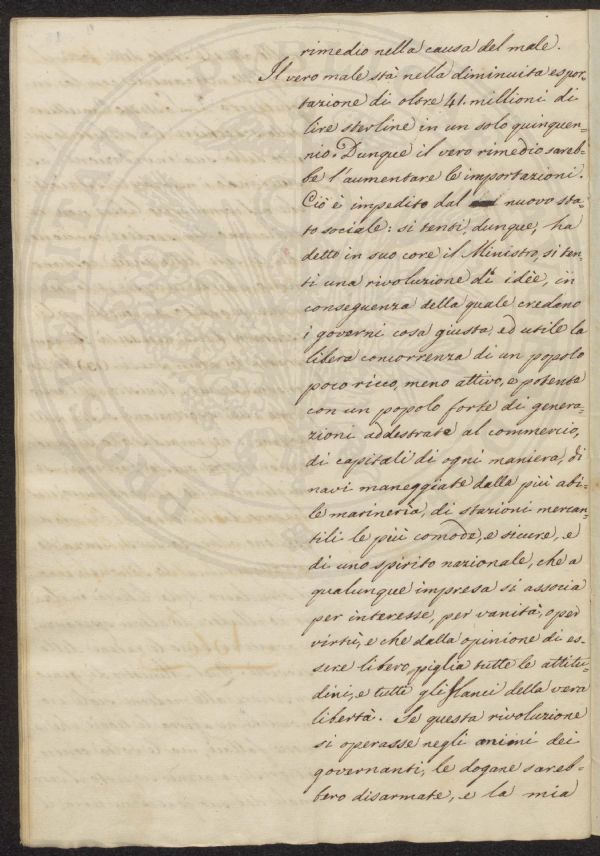 rimedio nella causa del male.
Il vero male stà nella diminuita espor-
tazione di oltre 41. millioni di
lire sterline in un solo quinquen-
nio. Dunque il vero rimedio sareb-
be l'aumentare le importazioni.
Ciò è impedito dal nuovo sta-
to sociale: si tenti, dunque, ha
detto in suo core il Ministro, si ten-
ti una rivoluzione di idée, in
conseguenza della quale credano
i governi cosa giusta, ed utile la
libera concorrenza di un popolo
poco ricco, meno attivo, e potente
con un popolo forte di genera-
zioni addestrate al commercio,
di capitali di ogni maniera, di
navi maneggiate dalla più abi-
le marineria, di stazioni mercan-
tili le più comode, e sicure, e
di uno spirito nazionale, che a
qualunque impresa si associa
per interesse, per vanità, o per
virtù, e che dalla opinione di es-
sere libero piglia tutte le attitu-
dini, e tutti gli slanci della vera
libertà. Se questa rivoluzione
si operasse negli animi dei
governanti, le dogane sareb-
bero disarmate, e la mia